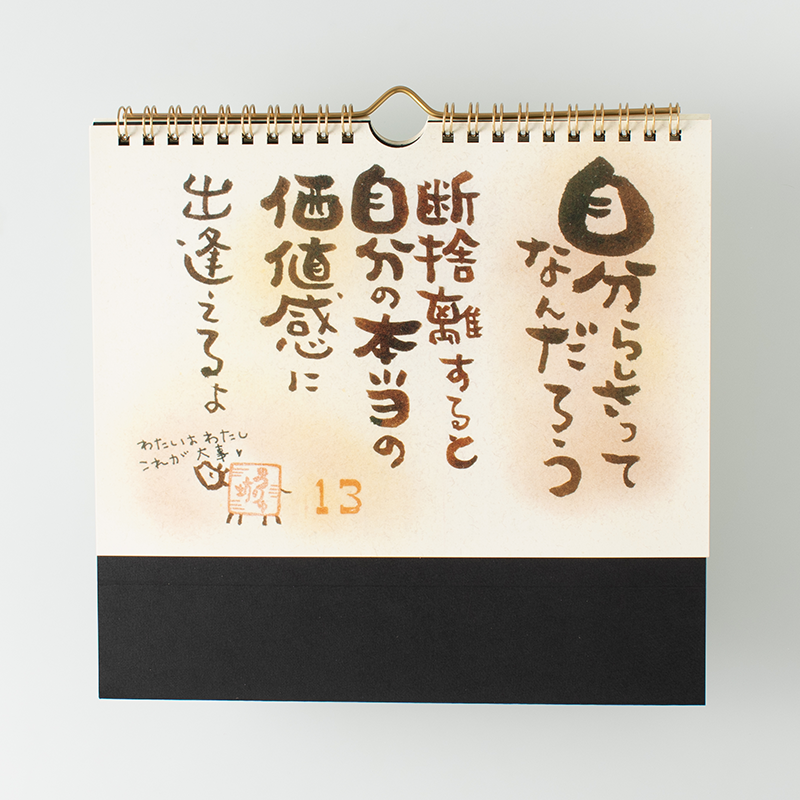 自分らしさって
なんだろう
断捨離すると
自分の本当の
価値感に
出逢えるよ
わたしはわたし
これが大事
13